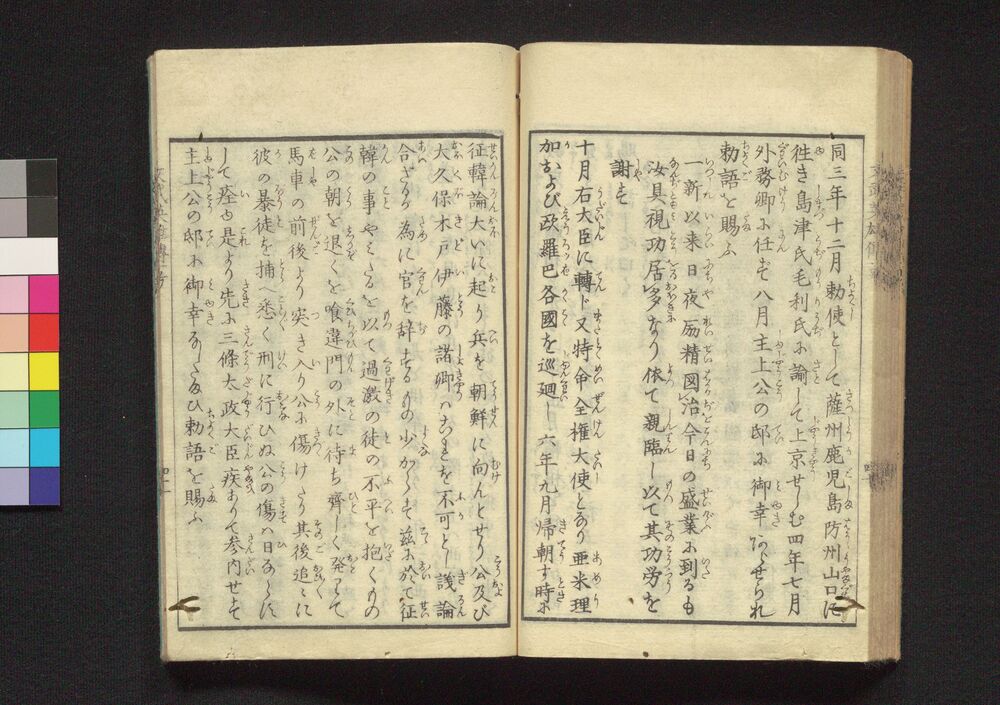 同三年十二月勅使として薩州鹿児島防州山口に
徃き島津氏毛利氏に諭して上京せしむ四年七月
外務卿に任ず八月主上公の邸に御幸あらせられ
勅語を賜ふ
一新以来日夜励精図治今日の盛業に到るも
汝具視功居多なり依て親臨し以て其功労を
謝す
十月右大臣に轉ド又特命全権大使となり亜米理
加および欧羅巴各國を巡廻し六年九月帰朝す時に
征韓論大いに起り兵を朝鮮に向んとせり公及び
大久保木戸伊藤の諸卿はこれを不可とし議論
合ざる為に官を辞するもの少からず茲に於て征
韓の事やみたるを以て過激の徒の不平を抱くもの
公の朝を退くを喰違門の外に待ち齊しく発して
馬車の前後より突き入り公に傷けたり其後追々に
彼の暴徒を捕へ悉く刑に行ひぬ公の傷は日あらずに
して痊ゆ是より先に三條大政大臣疾ありて参内せず
主上公の邸に御幸なしたまひ勅語を賜ふ